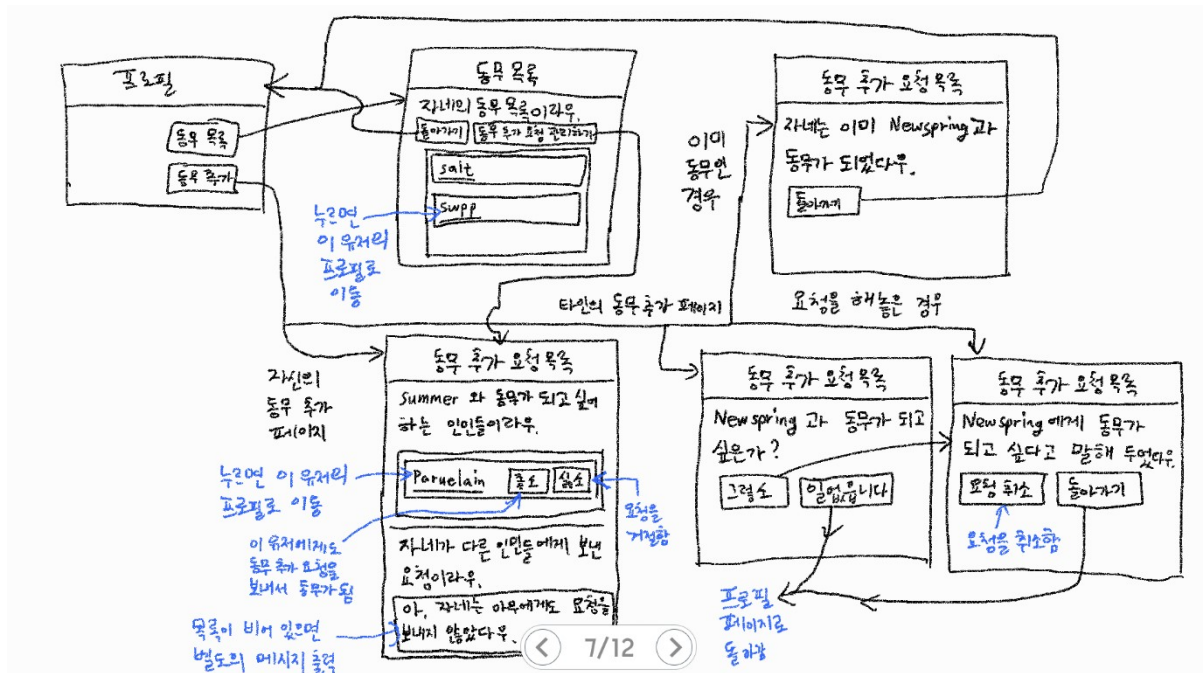 프로필
동무 목록
동무 추가
동무 목록
자네의 동무 목록이라우.
돌아가기 동무 추가 요청 관리하기
salt
swpp
누르면
이 유저의
프로필로
이동
이미
동무인
경우
동무 추가 요청 목록
자네는 이미 Newspring과
동무가 되었다우.
돌아가기
타인의 동무 추가 페이지
요청을 해놓은 경우
자신의
동무 추가
페이지
동무 추가 요청 목록
Summer 와 동무가 되고 싶어
하는 인민들이라우.
Paruelain 좋소 싫소
누르면 이 유저의
프로필로 이동
이 유저에게도
동무 추가 요청을
보내서 동무가 됨
요청을
거절함
자네가 다른 인민들에게 보낸
요청이라우.
아, 자네는 아무에게도 요청을
보내지 않았다우.
목록이 비어 있으면
별도의 메시지 출력
동무 추가 요청 목록
Newspring 과 동무가 되고
싶은가?
그렇소 일없습니다
프로필
페이지로
돌아감
동무 추가 요청 목록
Newspring에게 동무가
되고 싶다고 말해 두었다우.
요청 취소 돌아가기
요청을 취소함
7/12